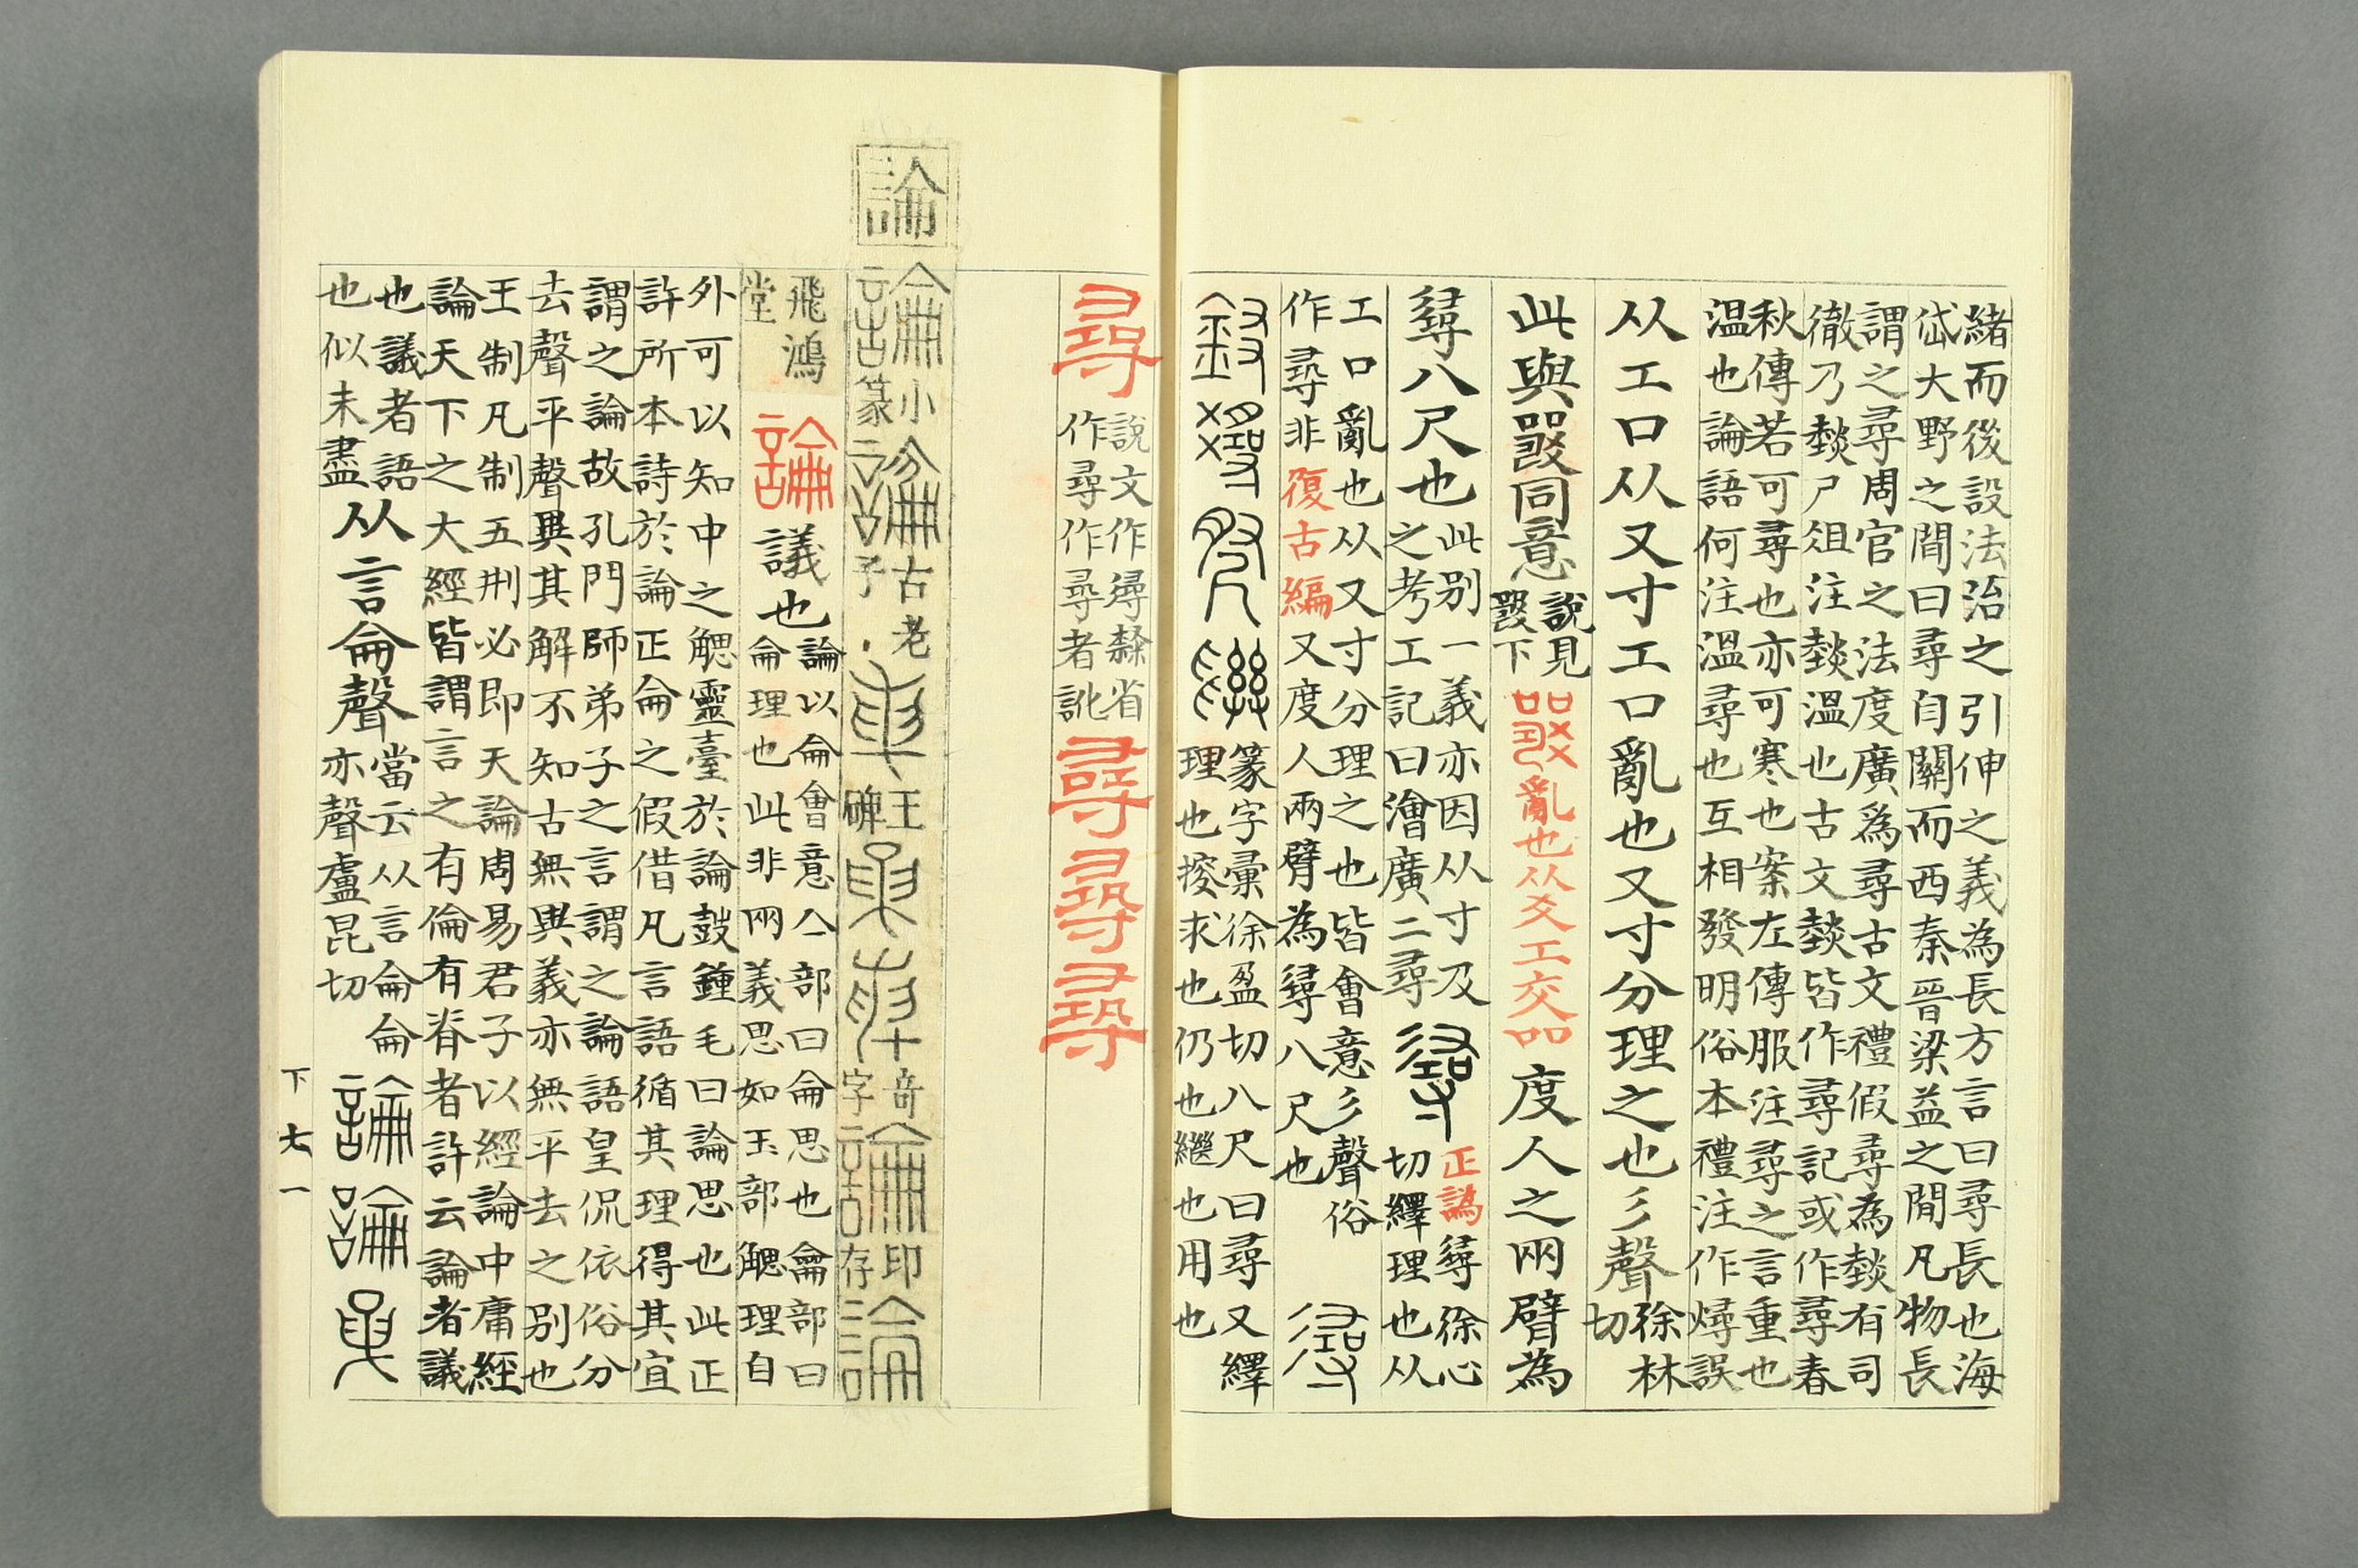 緒而後設法治之引伸之義為長方言曰尋長也海
岱大野之間曰尋自關而西秦晉梁益之間凡物長
謂之尋周官之法度廣為尋古文禮假尋為燅有司
徹乃燅尸俎注燅溫也古文燅皆作尋記或作尋春
秋傳若可尋也亦可寒也案左傳服注尋之言重也
温也論語何注溫尋也互相發明俗本禮注作燖誤
从工口从又寸工口亂也又寸分理之也彡聲
徐林
切
此與𤕦同意
說見
𤕦下
亂也从爻工交吅
度人之兩臂為
尋八尺也
此別一義亦因从寸及
之考工記曰澮廣二尋
正譌尋徐心
切繹理也从
工口亂也从又寸分理之也皆會意彡聲俗
作尋非復古編又度人兩臂為尋八尺也
篆字彙徐盈切八尺曰尋又繹
理也挼求也仍也繼也用也
尋
說文作𢒫隸省
作尋作尋者訛
尋尋尋
論
論小
篆
論古老
子
王
碑
奇
字
論印
存
論
飛鴻
堂
論議也
論以侖會意亼部曰侖思也龠部曰
侖理也此非兩義思如玉部䚡理自
外可以知中之䚡靈臺於論鼓鍾毛曰論思也此正
許所本詩於論正侖之假借凡言語循其理得其宜
謂之論故孔門師弟子之言謂之論語皇侃依俗分
去聲平聲異其解不知古無異義亦無平去之別也
王制凡制五刑必即天論周易君子以經論中庸經
論天下之大經皆謂言之有倫有脊者許云論者議
也議者語
也似未盡
从言侖聲
當云从言侖侖
亦聲盧昆切
論論
下七一